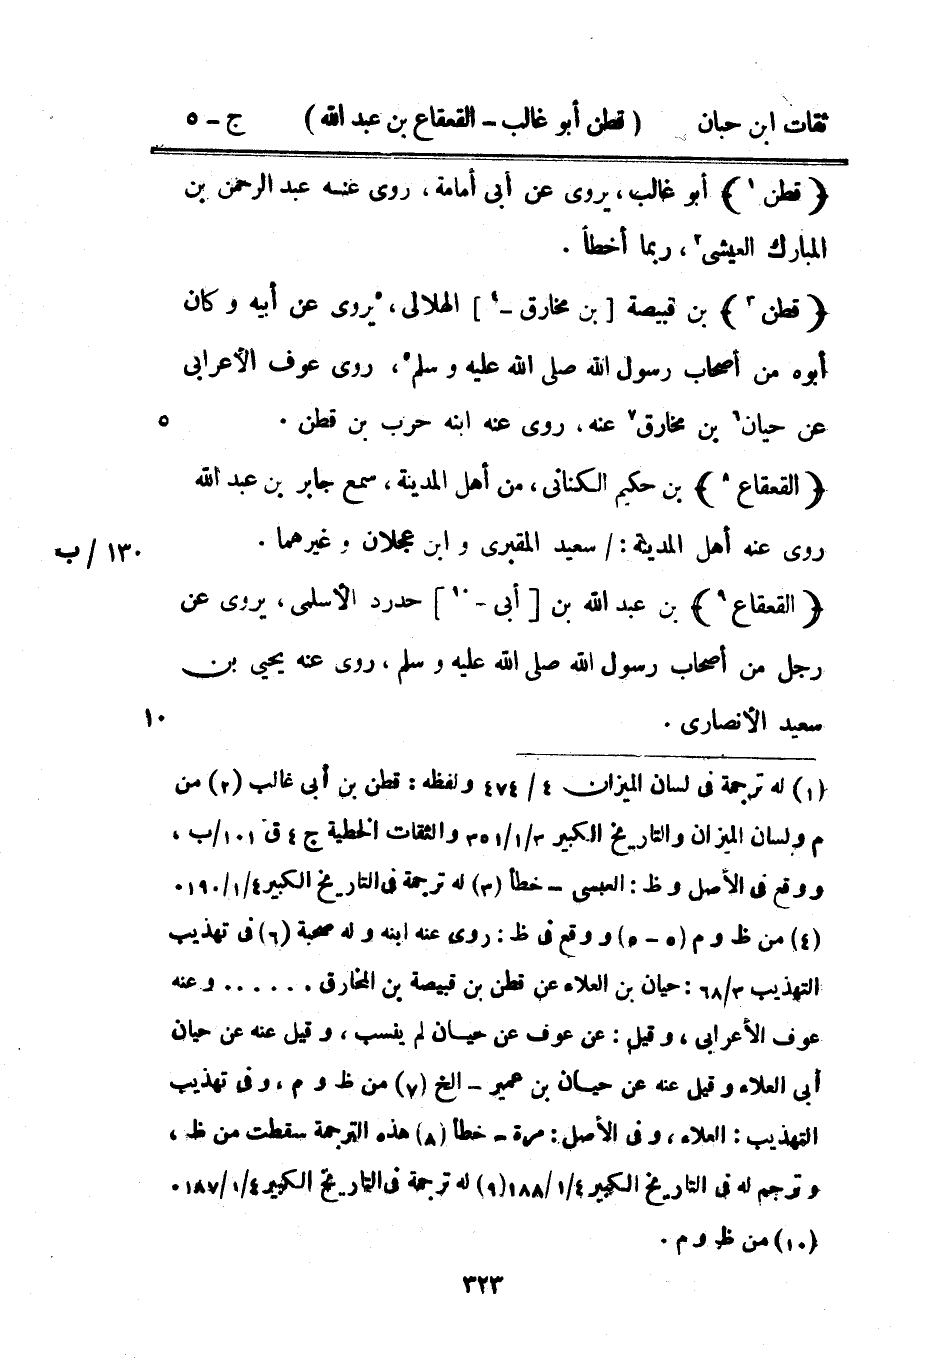 ثقات ابن حبان ( قطن أبو غالب – القعقاع بن عبد الله ) ج – ٥
﴿ قطن ١ ﴾ أبو غالب، يروى عن أبى أمامة، روى عنه عبد الرحمن بن
المبارك العيشى٢، ربما أخطأ .
﴿ قطن ٣ ﴾ بن قبيصة [ بن مخارق –٤ ] الهلالى، ٥يروى عن أبيه و كان
أبوه من أصحاب رسول الله صلى الله عليه و سلم٥، روى عوف الأعرابى
عن حيان٦ بن مخارق٧ عنه، روى عنه ابنه حرب بن قطن . ٥
﴿ القعقاع ٨ ﴾ بن حكيم الكنانى، من أهل المدينة، سمع جابر بن عبد الله
روى عنه أهل المدينة : / سعيد المقبرى و ابن عجلان و غيرهما . ١٣٠ / ب
﴿ القعقاع ٩ ﴾ بن عبد الله بن [ أبى –١٠ ] حدرد الأسلمى، يروى عن
رجل من أصحاب رسول الله صلى الله عليه و سلم، روى عنه يحيى بن
سعيد الأنصارى . ١٠
(١) له ترجمة فى لسان الميزان ٤ / ٤٧٤ و لفظه : قطن بن أبى غالب (٢) من
م و لسان الميزان و التاريخ الكبير ٣/١/٣٥١ و الثقات الخطية ج ٤ ق ١٠١/ب،
و وقع فى الأصل و ظ : العبسى – خطأ (٣) له ترجمة فى التاريخ الكبير ٤/١/١٩٠.
(٤) من ظ و م (٥ – ٥) و وقع فى ظ : روى عنه ابنه و له صحبة (٦) فى تهذيب
التهذيب ٣/٦٨ : حيان بن العلاء عن قطن بن قبيصة بن المخارق . . . . . . و عنه
عوف الأعرابى، و قيل : عن عوف عن حيان لم ينسب، و قيل عنه عن حيان
أبى العلاء و قيل عنه عن حيان بن عمير – الخ (٧) من ظ و م، و فى تهذيب
التهذيب : العلاء، و فى الأصل : مرة – خطأ (٨) هذه الترجمة سقطت من ظ،
و ترجم له فى التاريخ الكبير ٤/١/١٨٨ (٩) له ترجمة فى التاريخ الكبير ٤/١/١٨٧.
(١٠) من ظ و م .
٣٢٣